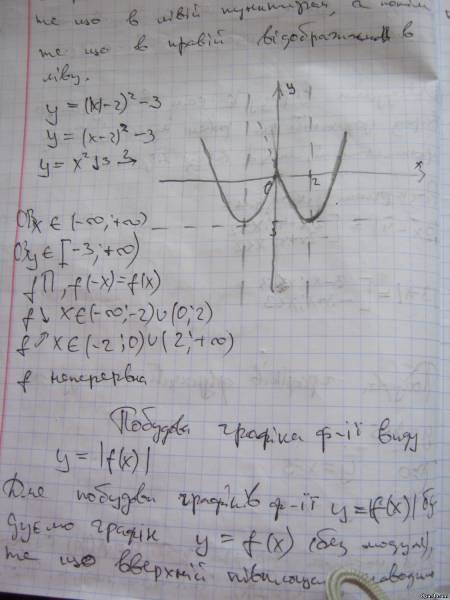 те що в лівій пунктиром, а потім
те що в правій відображаєм в
ліву.
y = (|x|-2)² - 3
y = (x-2)² - 3
y = x² ↓3
y
x
0
2
3
x ∈ (-∞; +∞)
y ∈ [-3; +∞)
f П, f(-x) = f(x)
f↓ x ∈ (-∞; -2) ∪ (0; 2)
f↗ x ∈ (-2; 0) ∪ (2; +∞)
f неперервна
Побудова графіка ф-ії виду
y = |f(x)|
Для побудови графіків ф-ії y = |f(x)| бу
дуємо графік y = f(x) (без модуля),
те що вверхній наводим